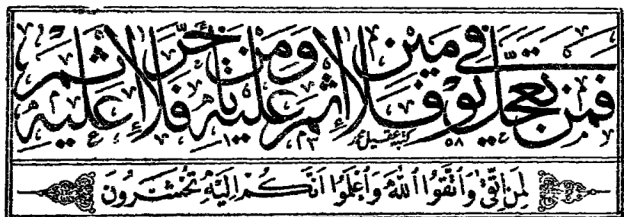 فمن تعجل في يومين فلا إثم عليه ومن تأخر فلا إثم عليه
لمن اتقى واتقوا الله واعلموا أنكم إليه تحشرون